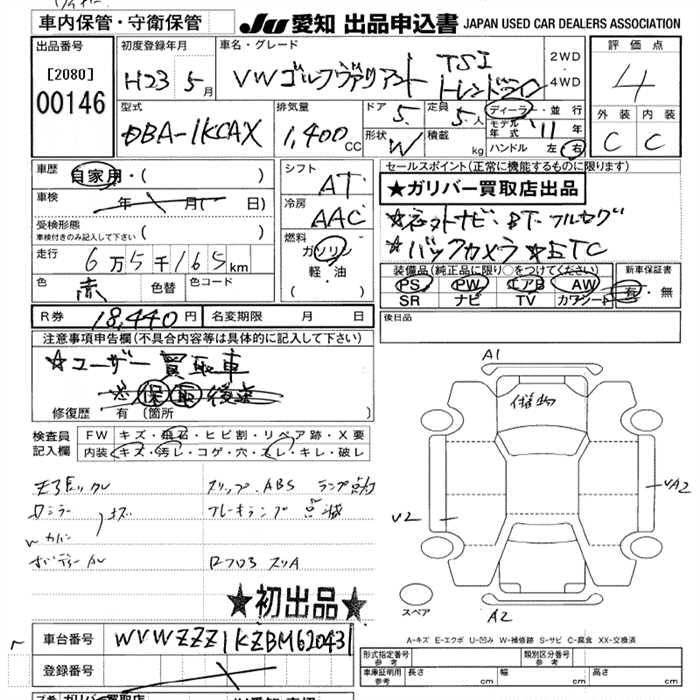 車内保管・守衛保管
JU 愛知 出品申込書 JAPAN USED CAR DEALERS ASSOCIATION
出品番号
[2080]
00146
初度登録年月
H23 5月
車名・グレード
VWゴルフヴァリアント TSI トレンドライン
2WD
4WD
評価点
4
外装 内装
C C
型式
DBA-1KCAX
排気量
1,400CC
ドア 5
定員 5人
形状 W
積載 kg
ディーラ・並行
モデル年式 11年
ハンドル 左 右
車歴
自家用・( )
車検
年 月( 日)
受検形態
車検付きのみ記入して下さい ( )
走行
6万5千165km
色
赤 色替 色コード
シフト
AT
冷房
AAC
燃料
ガソリン
軽・油
( )
セールスポイント(正常に機能するものに限ります)
★ガリバー買取店出品
☆ネオトナビ・BT・フルセグ
☆バックカメラ ☆ETC
装備品(純正品に限り○をつけてください)
PS PW エアB AW
SR ナビ TV カワシート
新車保証書
有・無
R券 18,440円 名変期限 月 日
後日品
注意事項申告欄(不具合内容等は具体的に記入して下さい)
☆ユーザー買取車
※保取後送
修復歴 有 (箇所 )
検査員
記入欄
FW キズ・飛石・ヒビ割・リペア跡・X要
内装 キズ・汚レ・コゲ・穴・スレ・キレ・破レ
スリップ・ABS ランプ点灯
ブレーキランプ 点滅
A1
V2
VA2
A2
スペア
★初出品★
A-キズ E-エクボ U-凹み W-補修跡 S-サビ C-腐食 XX-交換済
車台番号 WVWZZZ1KZBM620431
登録番号
形式指定番号
参考
類別区分番号
参考
車庫証明用
参考
長さ cm 幅 cm 高さ cm
ガリバー買取店